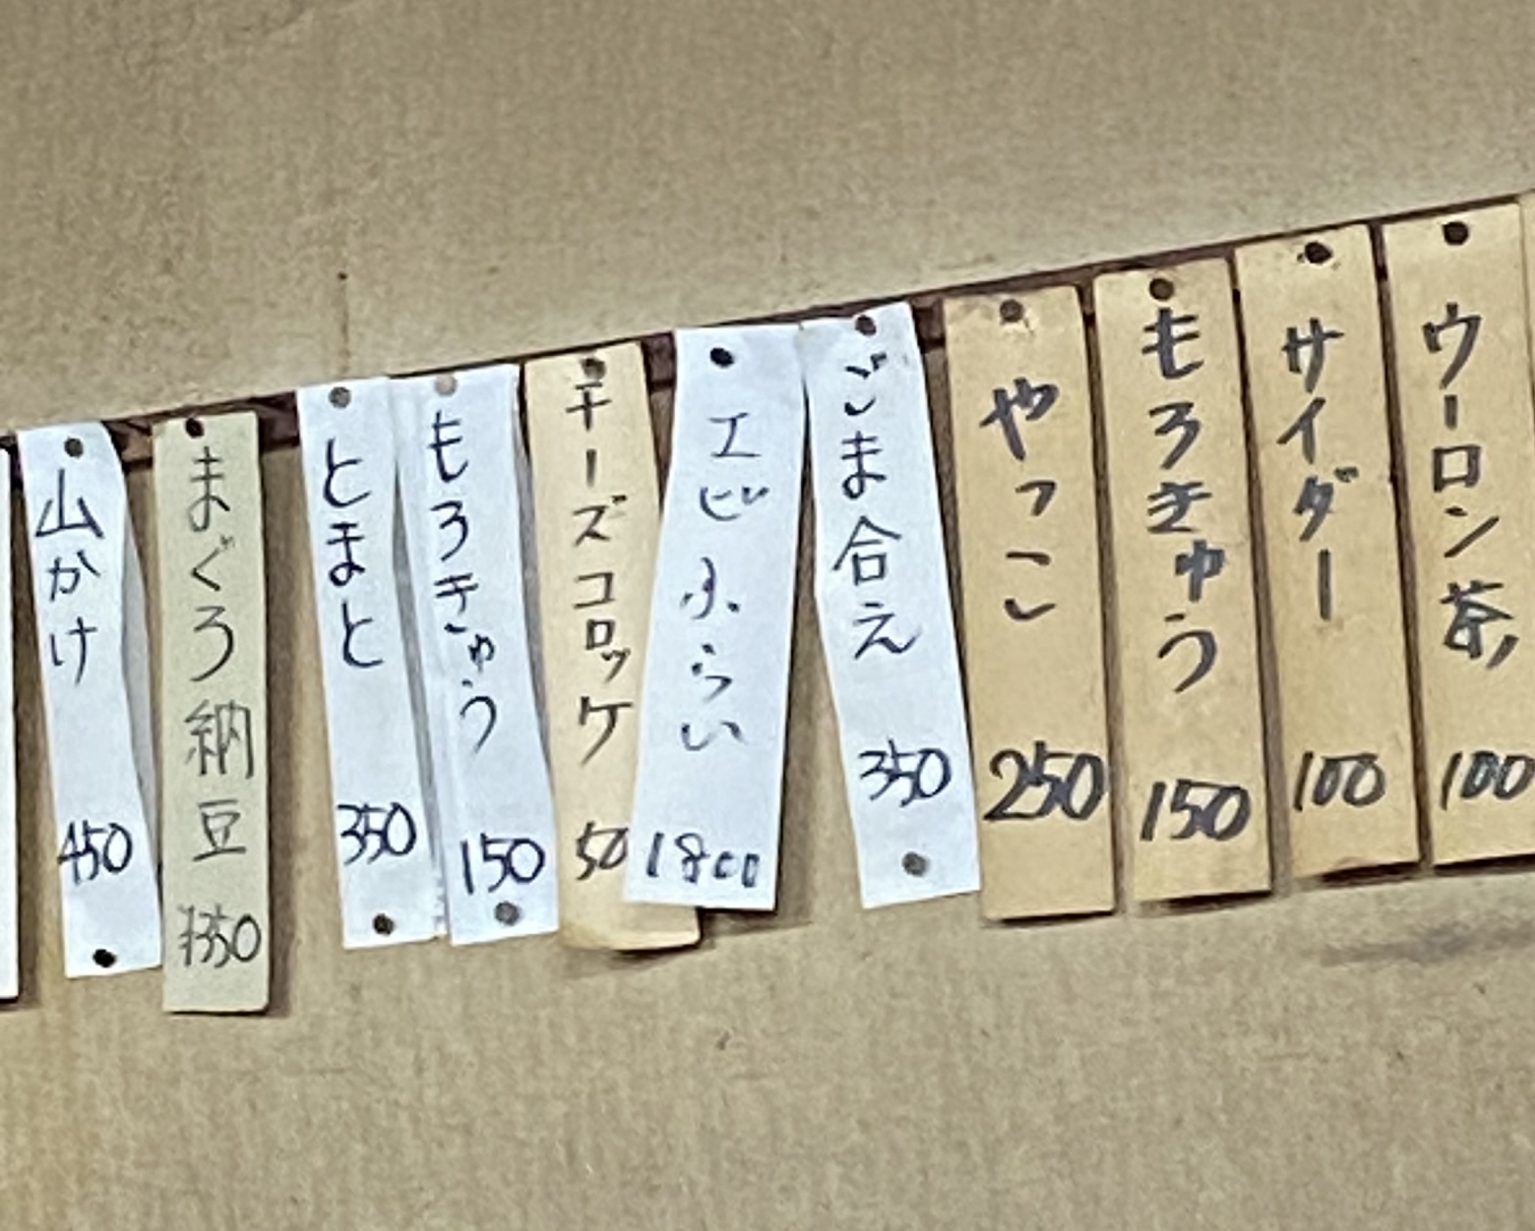 ウーロン茶 100
サイダー 100
もろきゅう 150
やっこ 250
ごま合え 350
エビふらい 1800
チーズコロッケ 50
もろきゅう 150
とまと 350
まぐろ納豆 350
山かけ 450